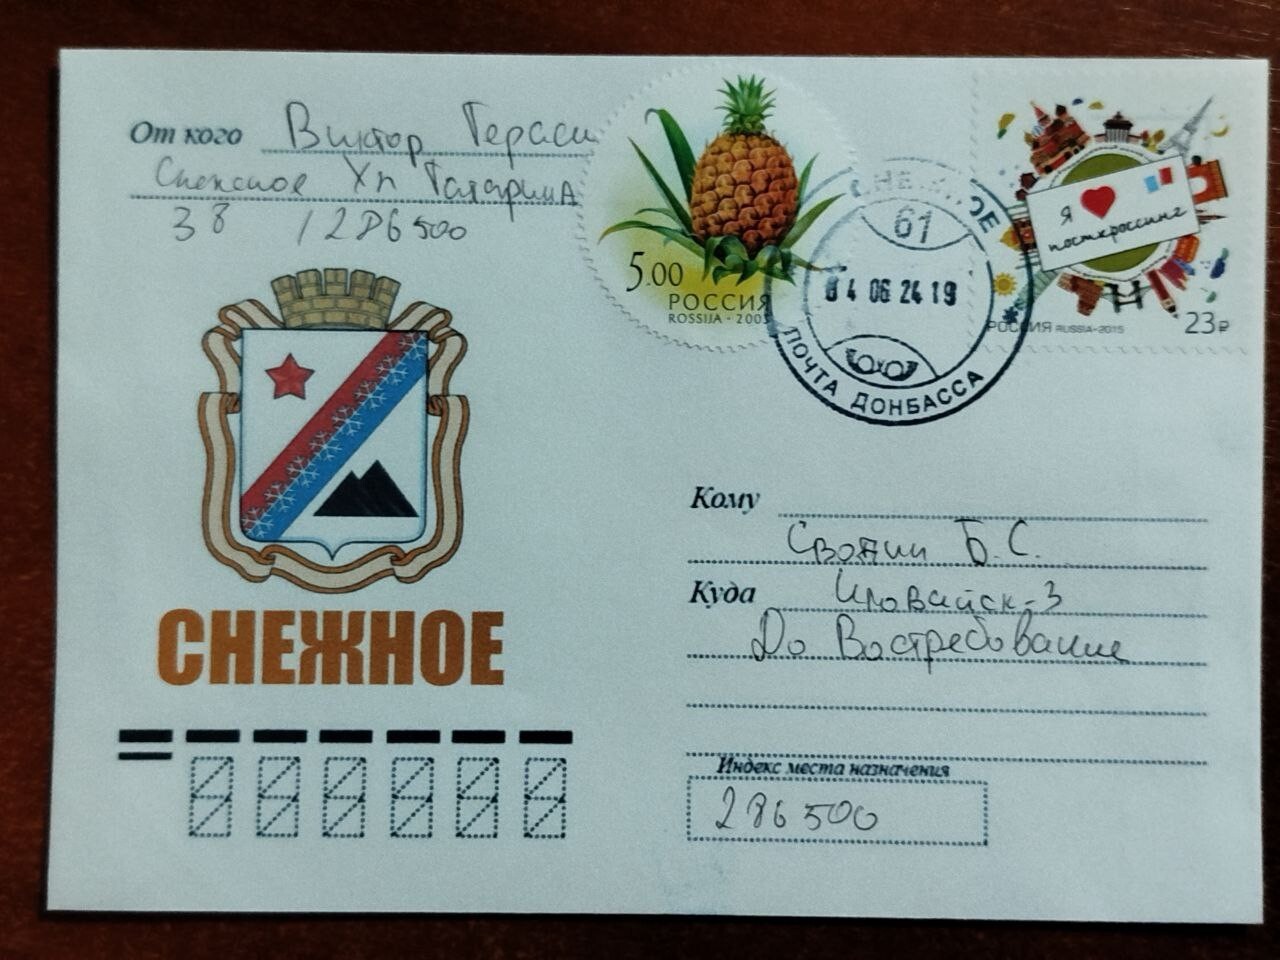 От кого Виктор Гераси
Снежное Хп Гагарина
38 1286500
5.00
РОССИЯ
ROSSIJA · 2003
СНЕЖНОЕ
61
04 06 24 19
ПОЧТА ДОНБАССА
Я
посткроссинг
РОССИЯ RUSSIA-2015
23₽
СНЕЖНОЕ
Кому
Сводин Б.С.
Куда Иловайск-3
До Востребование
Индекс места назначения
286500